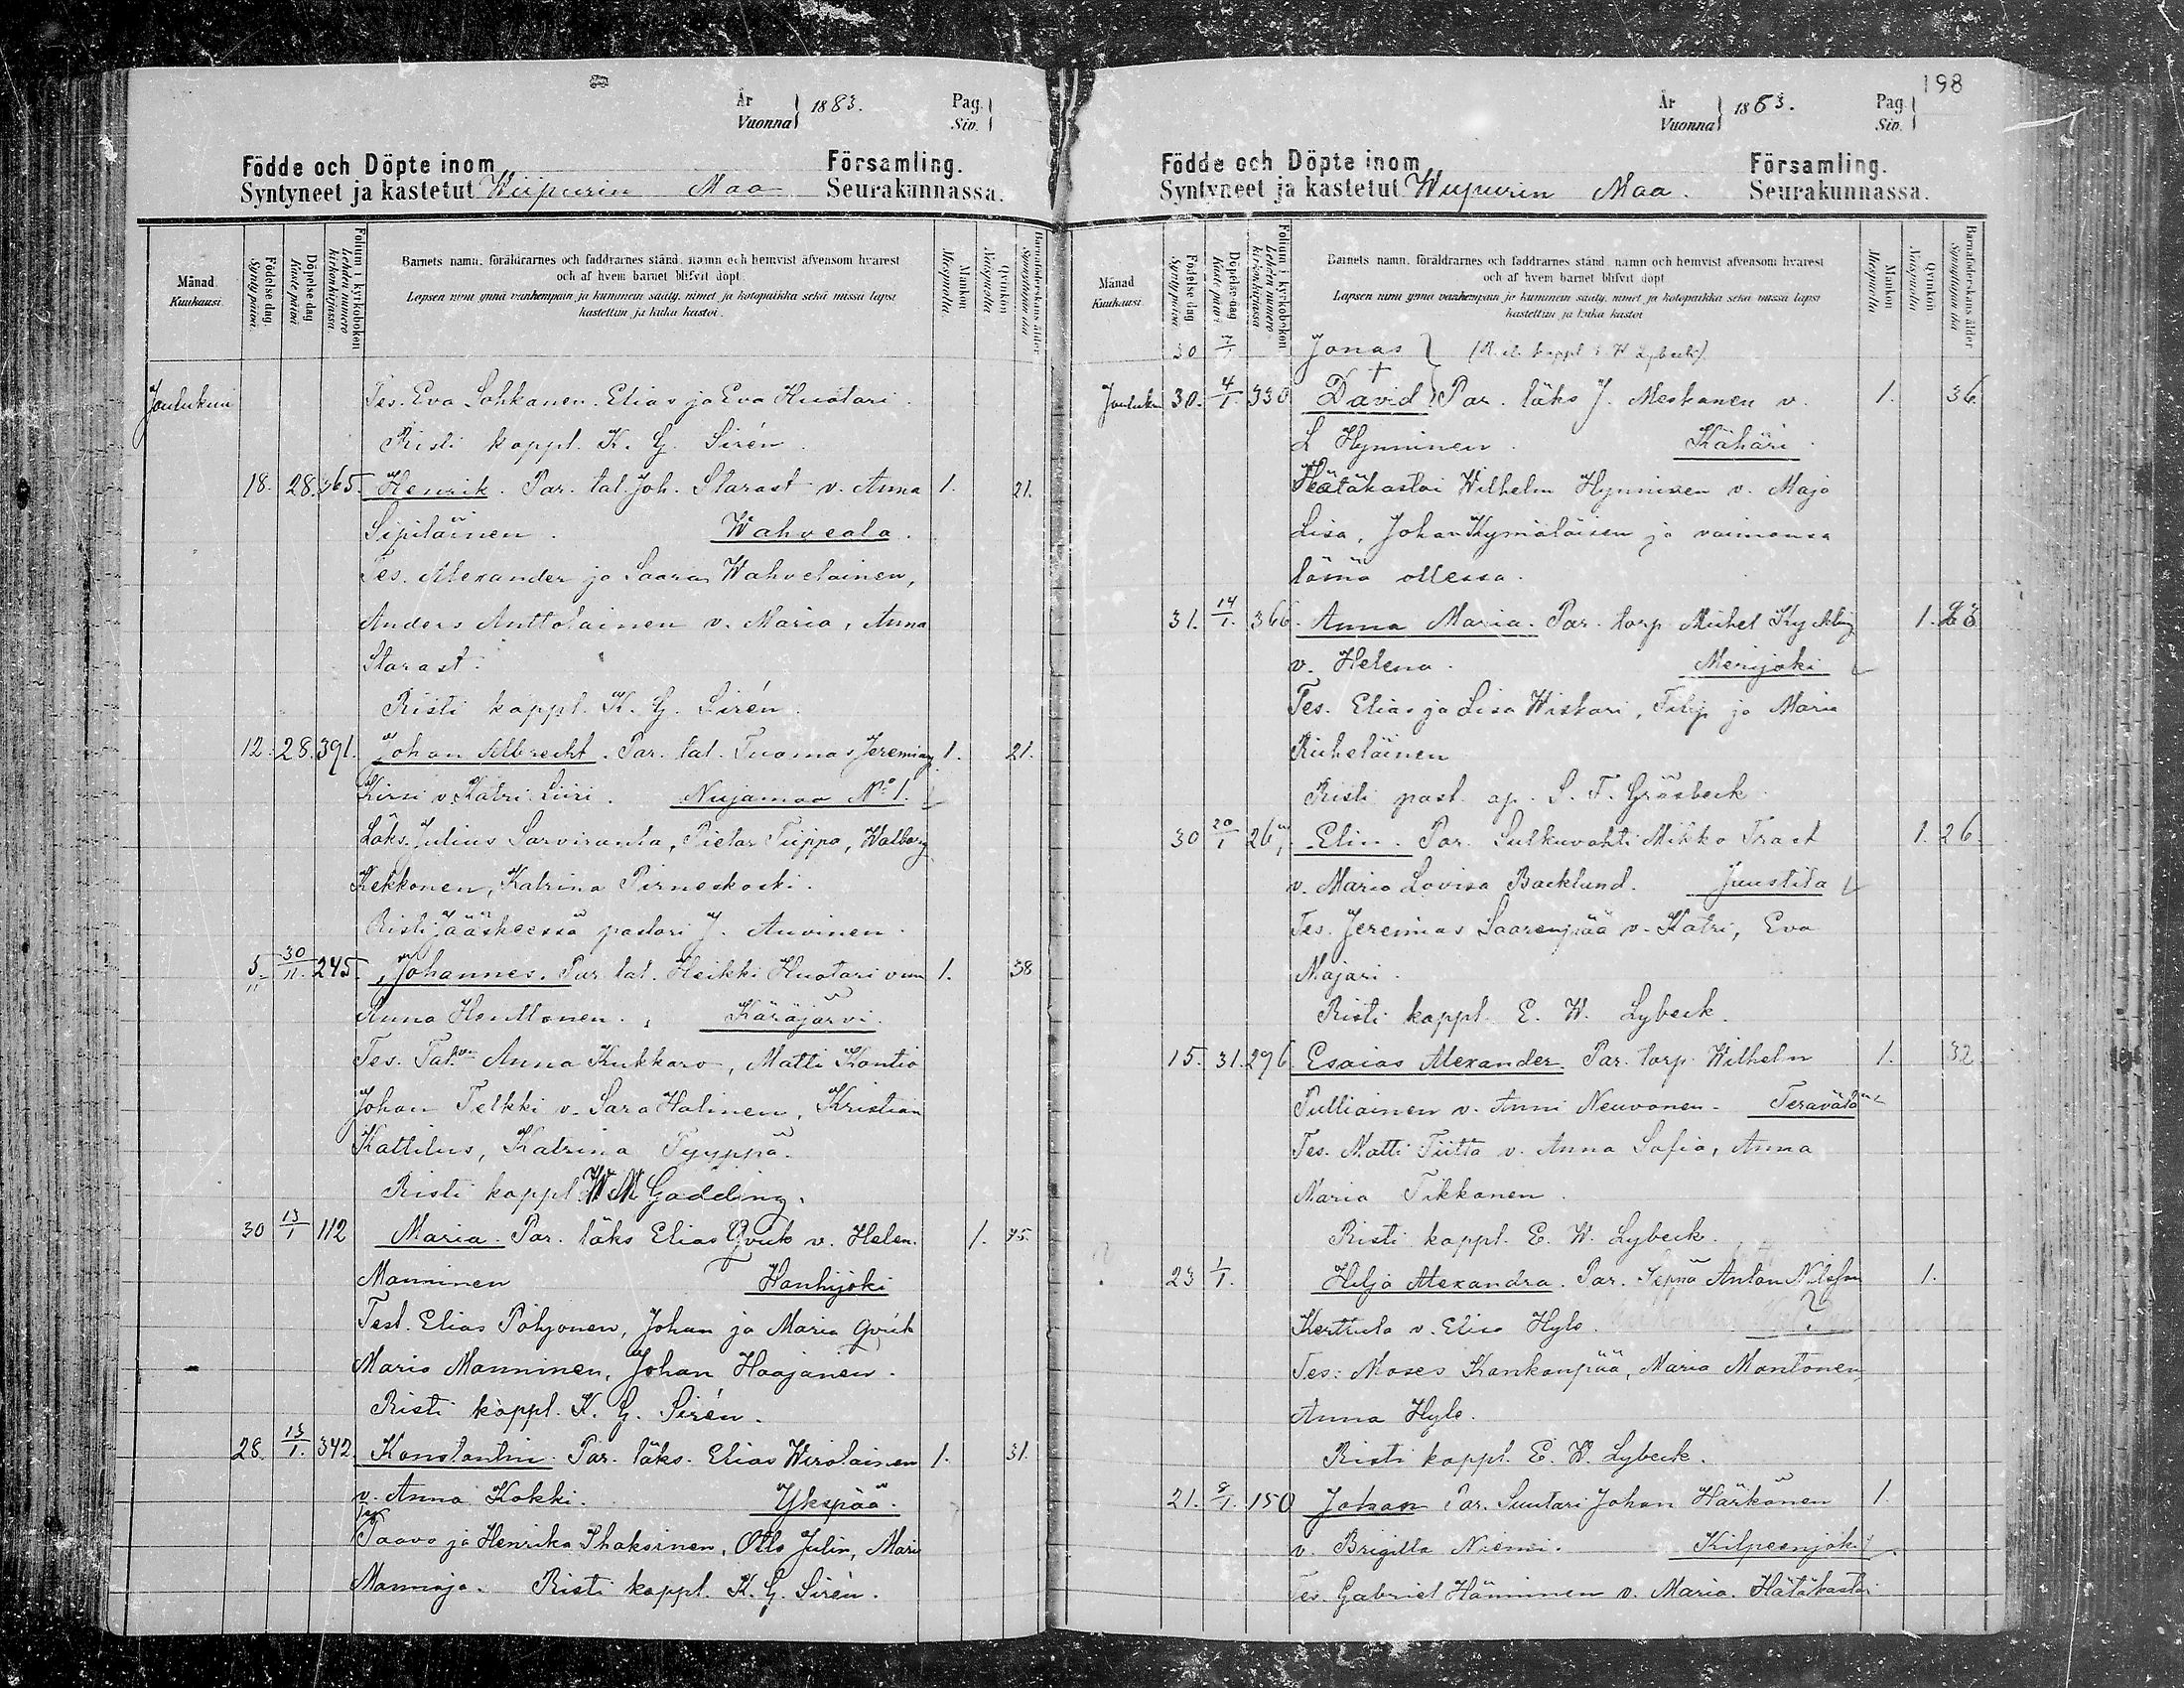 År
Vuonna } 1883.
Pag.
Siv.
Födde och Döpte inom Församling.
Syntyneet ja kastetut Wiipurin Maa Seurakunnassa.
Månad
Kuukausi.
Födelse dag
Syntypäivä
Döpelse dag
Kastepäivä
Folium i kyrkoboken
Lehden numero
kirkonkirjassa
Barnets namn, föräldrarnes och faddrarnes stånd, namn och hemvist äfvensom hvarest
och af hvem barnet blifvit döpt.
Lapsen nimi ynnä vanhempain ja kummein sääty, nimet ja kotopaikka sekä missä lapsi
kastettiin ja kuka kastoi.
Mankön
Miespuolia
Qvinkön
Naispuolia
Barnaföderskans ålder
Synnyttäjän ikä
Joulukuu Tes. Eva Lohkanen. Elias ja Eva Huotari.
Risti kappl. K. G. Sirén.
18. 28. 365. Henrik. Par. tal. Joh. Starast v. Anna 1. 21.
Sipiläinen. Wahveala.
Tes. Alexander ja Saara Wahvelainen,
Anders Anttolainen v. Maria, Anna
Starast.
Risti kappl. K. G. Sirén.
12. 28. 391. Johan Albrecht. Par. tal. Tuomas Jeremiap. 1. 21.
Kirsi v. Katri Liiri. Nujamaa No 1.
Läks. Julius Sarviranta, Pietar Tiippa, Walborg
Kekkonen, Katrina Pirneskoski.
Risti Jääskessä pastori J. Auvinen.
5. 30/11. 245. Johannes. Par. tal. Heikki Huotari v:m 1. 38
Anna Henttonen. Käräjärvi.
Tes. Tal. v. Anna Kukkaro, Matti Kontio
Johan Telkki v. Sara Halinen, Kristian
Kattilus, Katrina Tyyppä.
Risti kappl W M Gadding.
30 13/1 112 Maria. Par. läks Elias Qvick v. Helen. 1. 45.
Manninen Hanhijoki
Test. Elias Pohjonen, Johan ja Maria Qvick
Maria Manninen, Johan Haajanen.
Risti kappl. K. G. Sirén.
28. 13/1. 342. Konstantin. Par. läks. Elias Wirolainen 1. 31.
v. Anna Kokki. Ykspää.
Tes Paavo ja Henrika Ihaksinen, Otto Julin, Mari
Mannoja. Risti kappl. K. G. Sirén.
198
År
Vuonna } 1883.
Pag.
Siv.
Födde och Döpte inom Församling.
Syntyneet ja kastetut Wiipurin Maa. Seurakunnassa.
Månad
Kuukausi
Födelse dag
Syntypäivä
Döpelse dag
Kastepäivä
Folium i kyrkoboken
Lehden numero
kirkonkirjassa
Barnets namn, föräldrarnes och faddrarnes stånd, namn och hemvist äfvensom hvarest
och af hvem barnet blifvit döpt
Lapsen nimi ynnä vanhempain ja kummein sääty, nimet ja kotopaikka sekä missä lapsi
kastettiin ja kuka kastoi
Mankön
Miespuolia
Qvinkön
Naispuolia
Barnaföderskans ålder
Synnyttäjän ikä
30 Jonas } kappl. E W Lybeck).
Jouluku 30. 4/1. 330 David } Par. läks J. Meskanen v. 1. 36.
L Hynninen. Kähäri.
Hätäkastoi Wilhelm Hynnisen v. Maja
Lisa, Johan Kymäläisen ja vaimonsa
läsnä ollessa.
31. 14/1. 366. Anna Maria. Par. torp Michel Kyckling 1. 23
v. Helena. Merijoki
Tes. Elias ja Lisa Wiskari, Filip ja Maria
Riiheläinen
Risti past. ap. S. F. Gräsbeck.
30 20/1 267. Elin. Par. Sulkuvahti Mikko Trast 1. 26.
v. Maria Lovisa Backlund. Juustila
Tes. Jeremias Saarenpää v. Katri, Eva
Majari.
Risti kappl. E. W. Lybeck.
15. 31. 296. Esaias Alexander. Par. torp. Wilhelm 1. 32
Pulliainen v. Anni Neuvonen. Terävälä
Tes. Matti Tiitta v. Anna Sofia, Anna
Maria Tikkanen.
Risti kappl. E. W. Lybeck.
? 23 1/1. Hilja Alexandra. Par. Seppä Anton Nilsson 1.
Kerttula v. Elisa Hyle. ?
Tes: Moses Kankanpää, Maria Mantonen,
Anna Hyle.
Risti kappl. E. W. Lybeck.
21. 8/1. 150 Johan Par. Suutari Johan Härkönen 1.
v. Brigitta Niemi. Kilpeenjoki.
Tes. Gabriel Hänninen v. Maria. Hätäkastoi